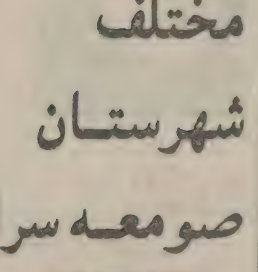 مختلف
شهرستان
صومعه سرا